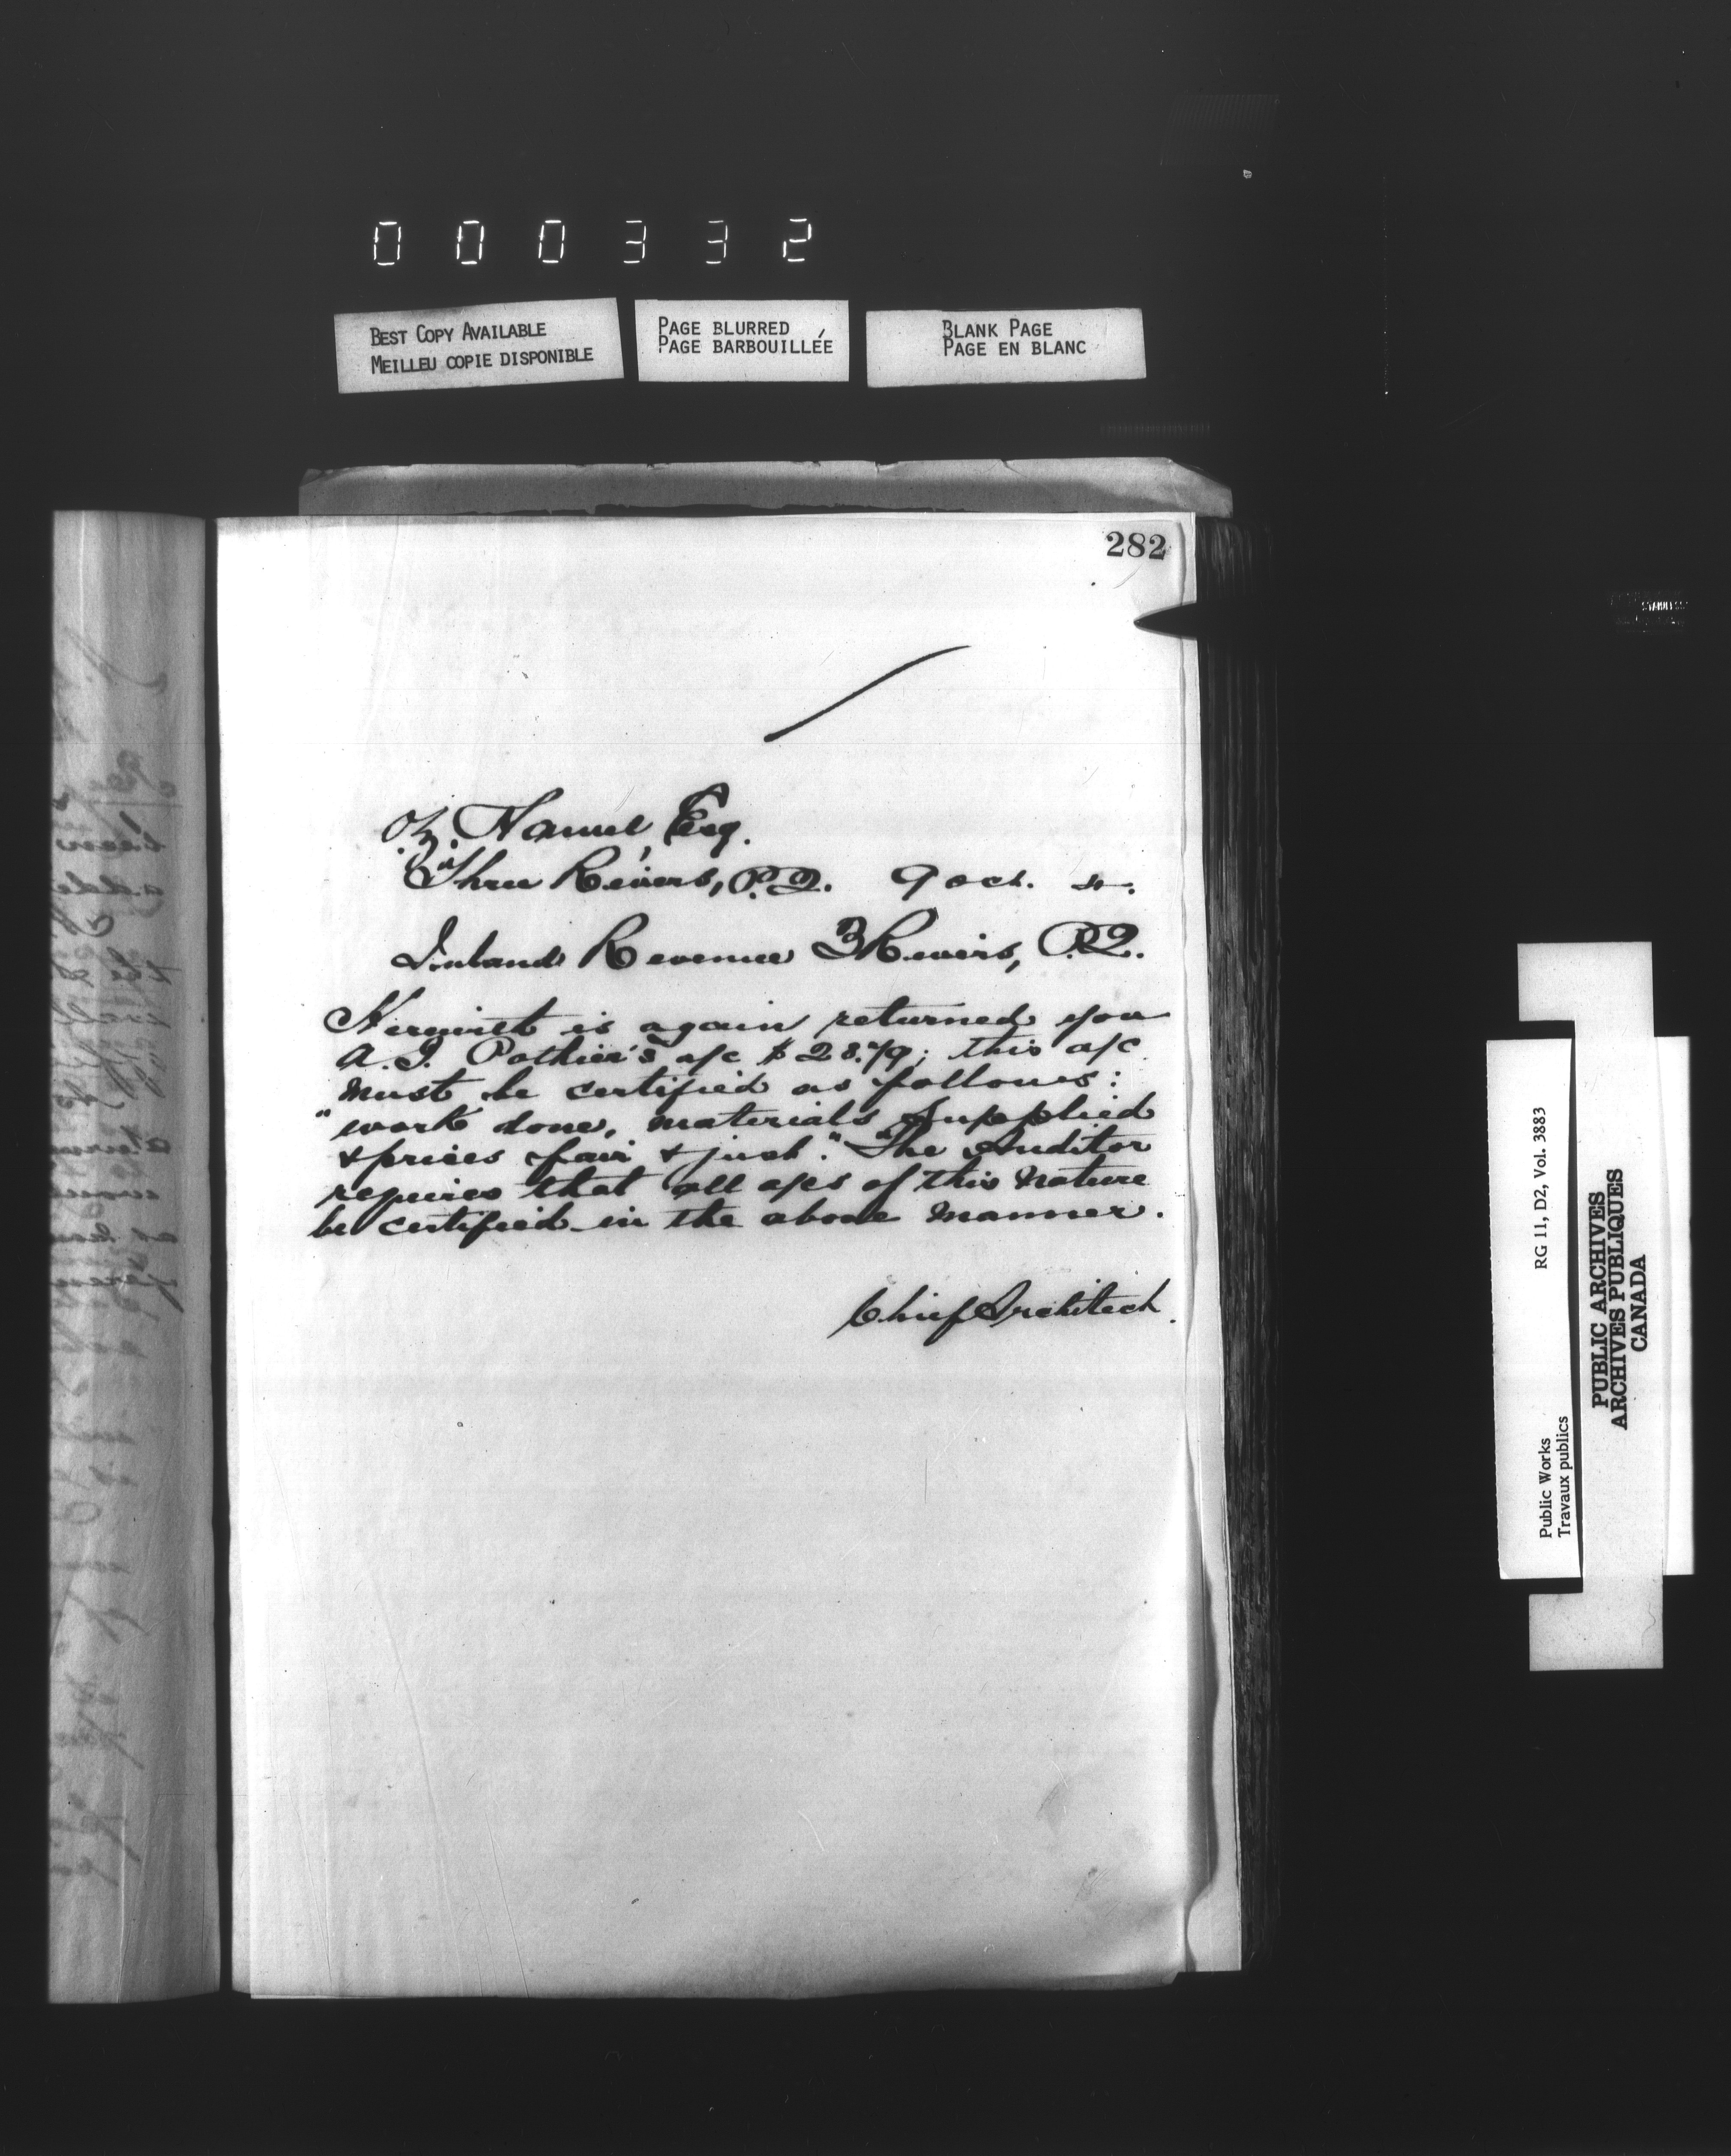 000332
BEST COPY AVAILABLE
MEILLEU COPIE DISPONIBLE
PAGE BLURRED
PAGE BARBOUILLÉE
BLANK PAGE
PAGE EN BLANC
282
Oz. Hamel, Esq.
Three Rivers, P.Q. 9 Oct.
Inland Revenue 3 Rivers, P.Q.
Herewith is again returned you
A. I. Pothier's a/c $28.79; this a/c
must be certified as follows:
"work done, materials supplied
& prices fair & just." The Auditor
requires that all a/cs of this nature
be certified in the above manner.
Chief Architect.
RG 11, D2, Vol. 3883
Public Works
Travaux publics
PUBLIC ARCHIVES
ARCHIVES PUBLIQUES
CANADA